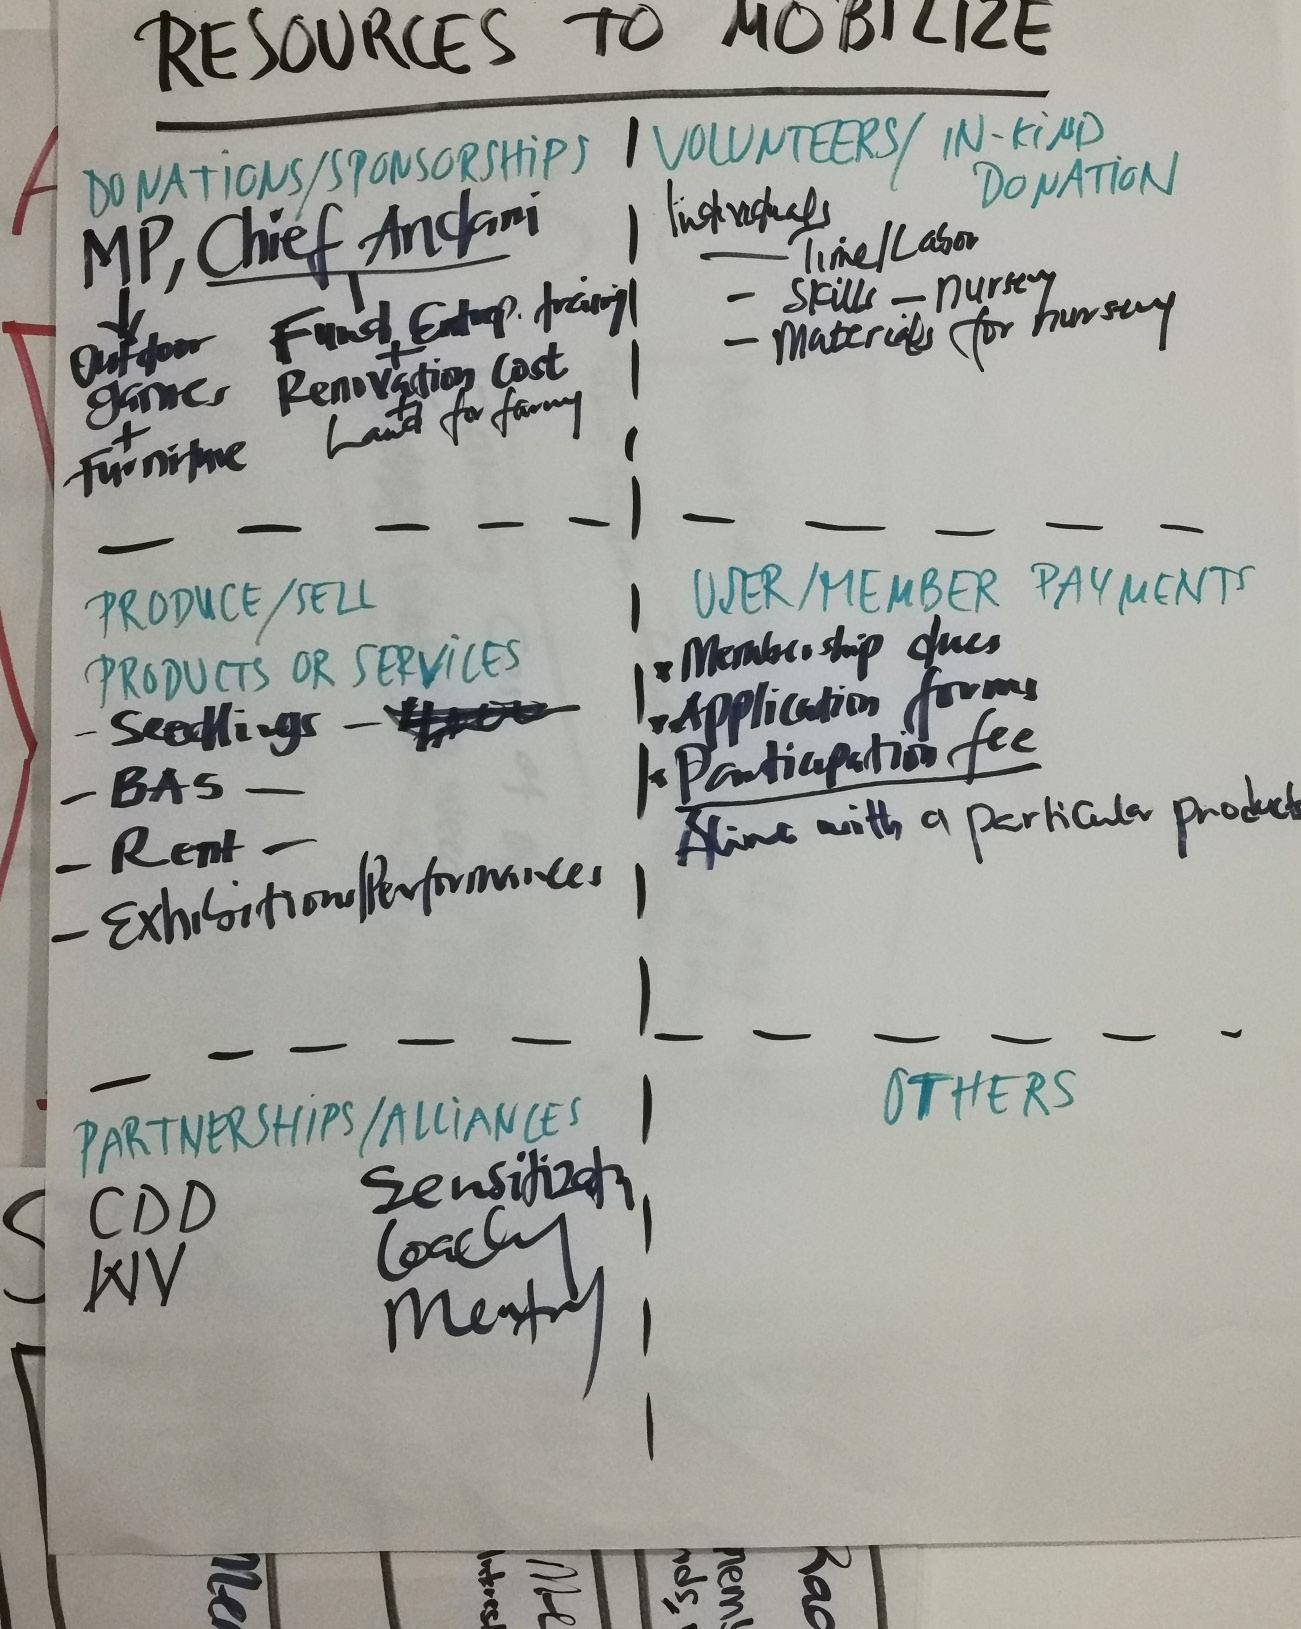 RESOURCES TO MOBILIZE
DONATIONS/SPONSORSHIPS
MP, Chief Andani
Outdoor
games
+
Furniture
Fund Entrep. training
+
Renovation Cost
+
Land for farmy
VOLUNTEERS/ IN-KIND
DONATION
Individuals
— Time/Labor
- Skills - nursery
- Materials for nursery
PRODUCE/SELL
PRODUCTS OR SERVICES
- Seedlings -
- BAS -
- Rent -
- Exhibitions/Performances
USER/MEMBER PAYMENTS
* Membership dues
* Application forms
* Participation fee
with a particular products
PARTNERSHIPS/ALLIANCES
CDD
WV
Sensitizatn
OTHERS
Mem
Interest
nds,
nemb
Rad